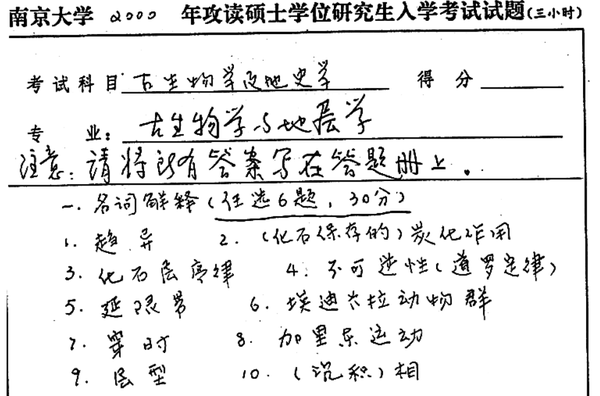 南京大学 2000 年攻读硕士学位研究生入学考试试题(三小时)
考试科目 古生物学及地史学 得分
专业: 古生物学与地层学
注意: 请将所有答案写在答题册上.
一. 名词解释(任选6题, 30分)
1. 趋异 2. (化石保存的)炭化作用
3. 化石层序律 4. 不可逆性(道罗定律)
5. 延限带 6. 埃迪卡拉动物群
7. 穿时 8. 加里东运动
9. 层型 10. (沉积)相